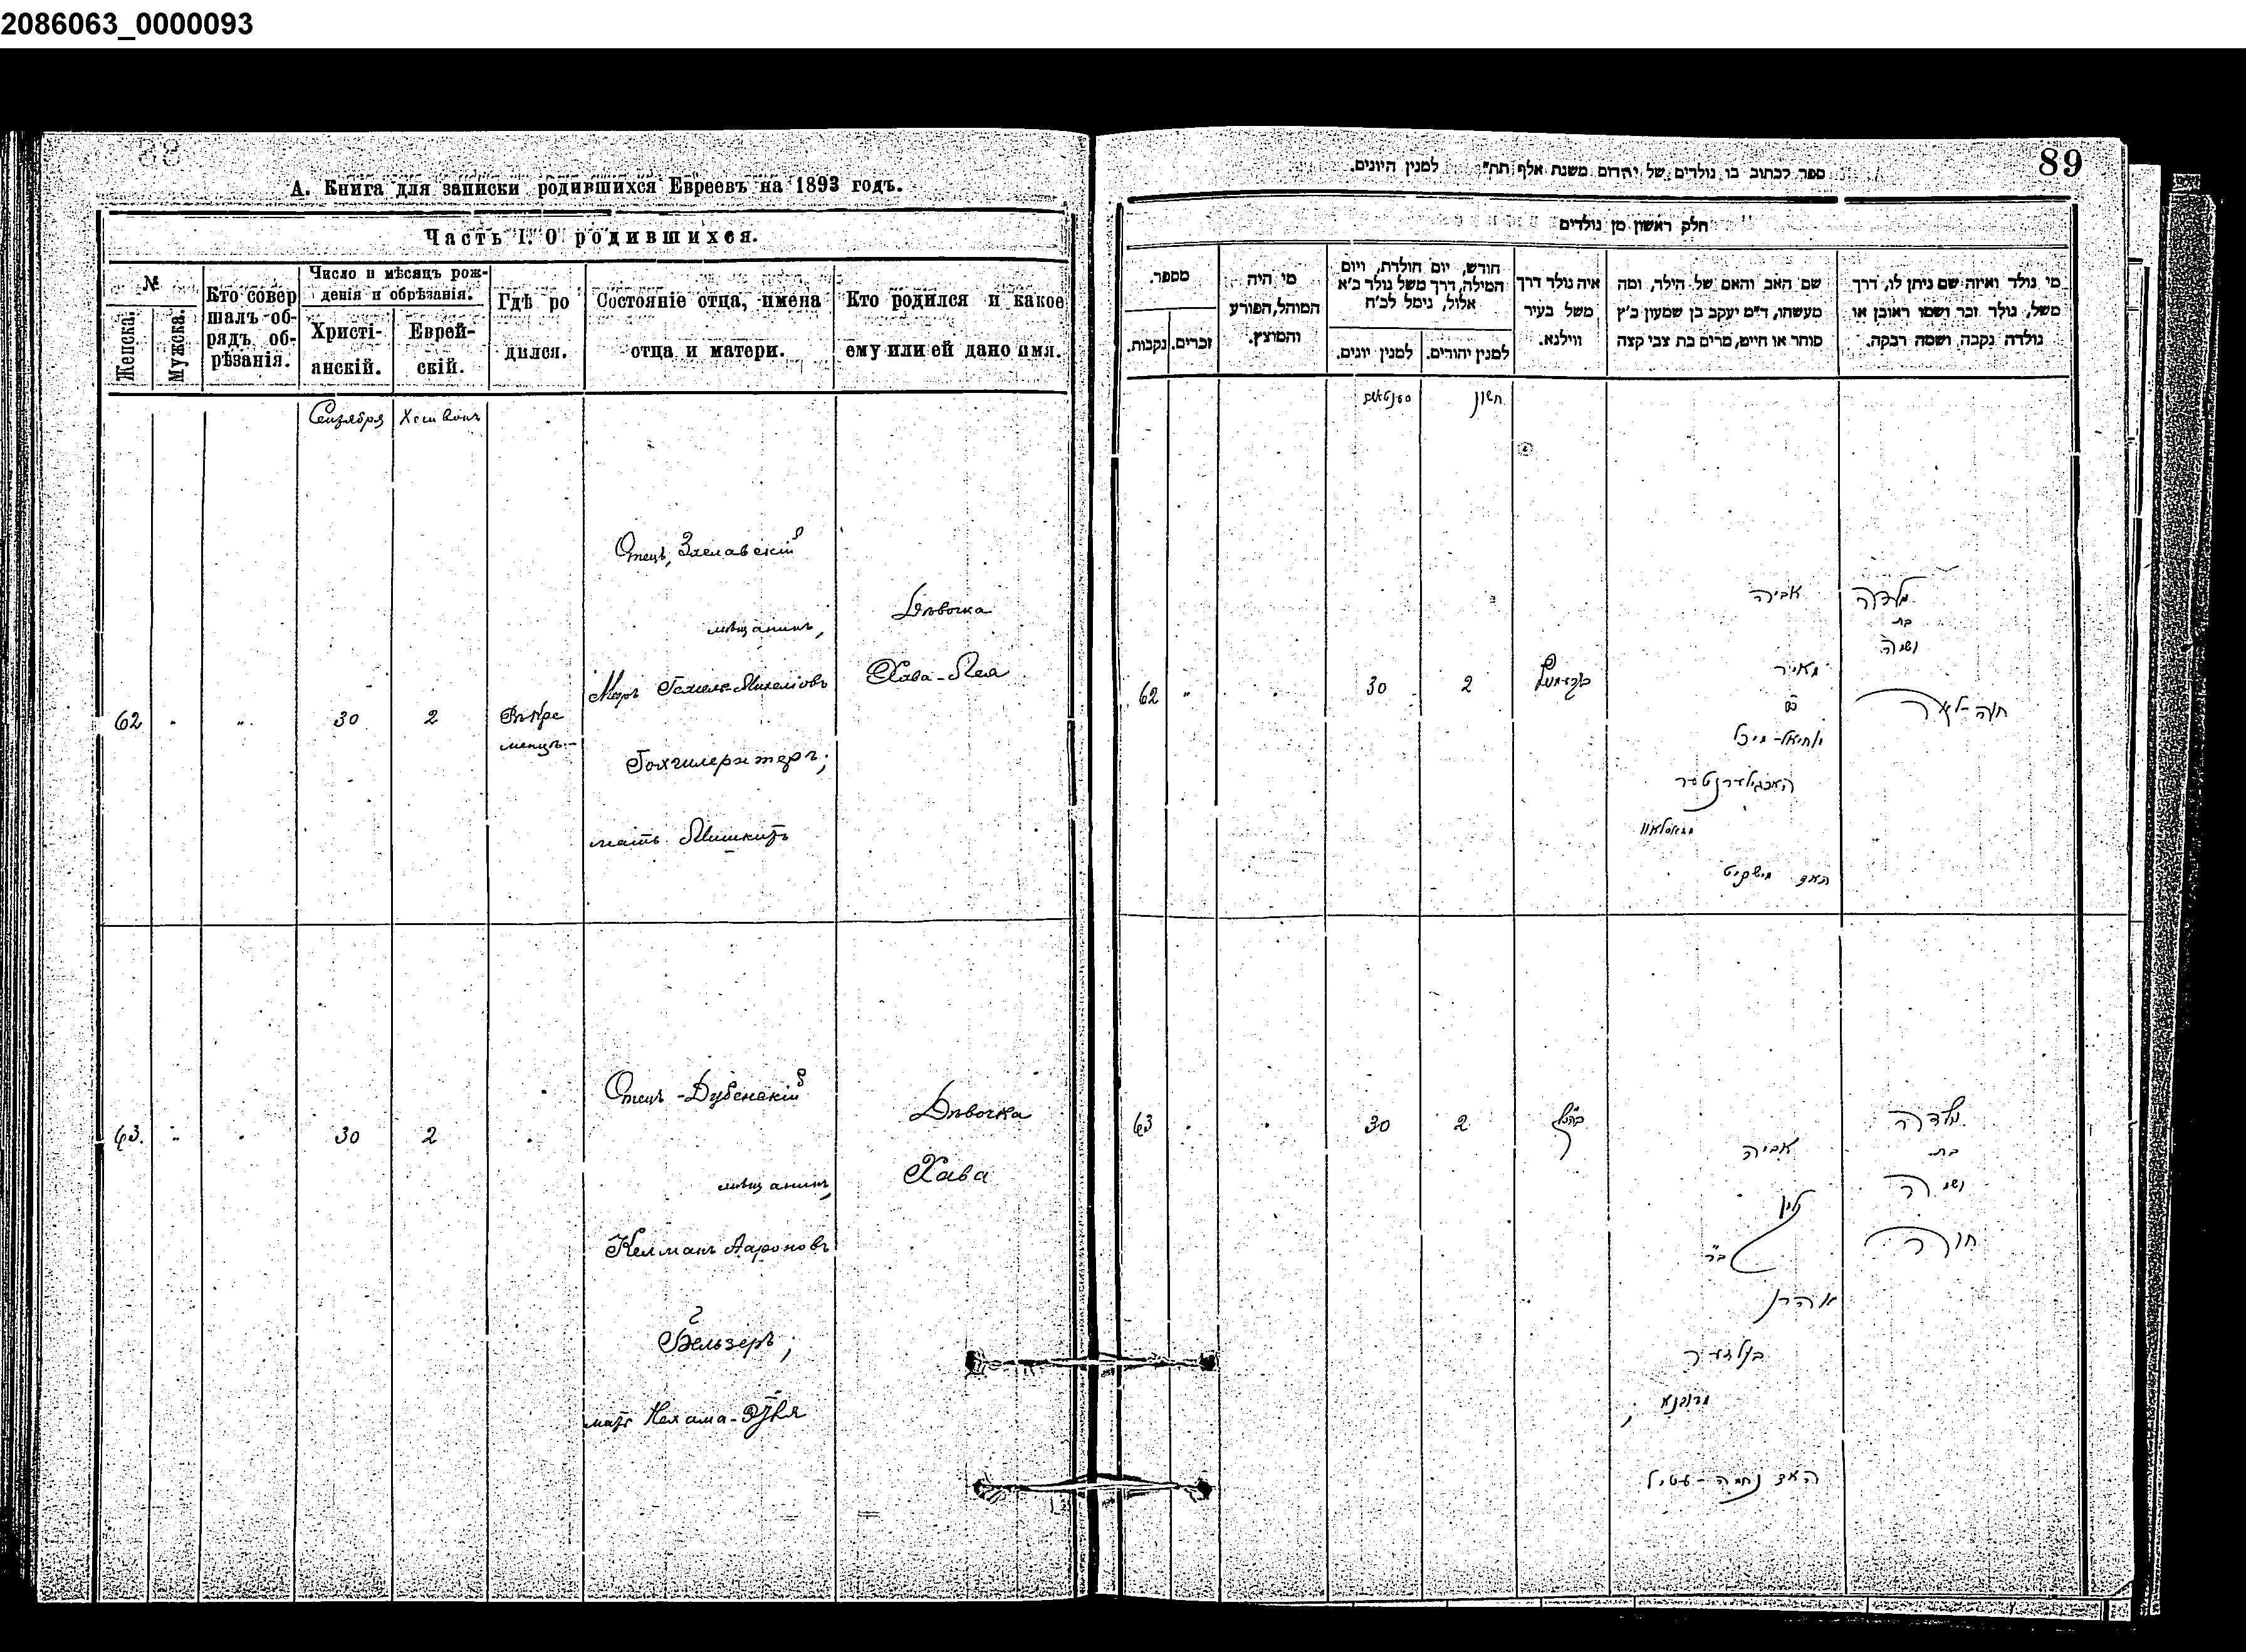 2086063_0000093
А. Книга для записки родившихся Евреевъ на 1893 годъ.
Часть I. О родившихся.
№
Женска.
Мужска.
Кто совер
шалъ об-
рядъ об-
рѣзанія.
Число и мѣсяцъ рож-
денія и обрѣзанія.
Христі-
анскій.
Еврей-
скій.
Гдѣ ро
дился.
Состояніе отца, имена
отца и матери.
Кто родился и какое
ему или ей дано имя.
Сентября
Хешвонъ
62
30
2
Въ Кре
менцѣ.-
Отецъ, Заславскій
мѣщанинъ,
Дѣвочка
Хава-Лея
мать Мишкитъ
63.
30
2
Отецъ - Дубенскій
мѣщанинъ,
Келманъ Аароновъ
Бельзеръ;
мать Нехама-
Дѣвочка
Хава
89
ספר לכתוב בו נולדים של יהדום משנת אלף תת״ למנין היונים.
חלק ראשון מן נולדים
מספר.
נקבות.
זכרים.
מי היה
המוהל, הפורע
והמוצץ.
חודש, יום הולדת, ויום
המילה, דרך משל נולד כ׳א
אלול, נימל לכ׳ח
למנין יונים.
למנין יהודים.
איה נולד דרך
משל בעיר
ווילנא.
שם האב והאם של הילד, ומה
מעשהו, ד״מ יעקב בן שמעון כ׳ץ
סוחר או חייט, מרים בת צבי קצה
מי נולד ואיזה שם ניתן לו, דרך
משל, נולד זכר ושמו ראובן או
נולדה נקבה ושמה רבקה.
חשון
62
30
2
אביה
מאיר
יחיאל-מיכל
האם מישקיט
נולדה
בת
ושמה
חוה-לאה
63
30
2
אביה
אהרן
בעלזער
האם נחמה-
נולדה
בת
ושמה
חוה